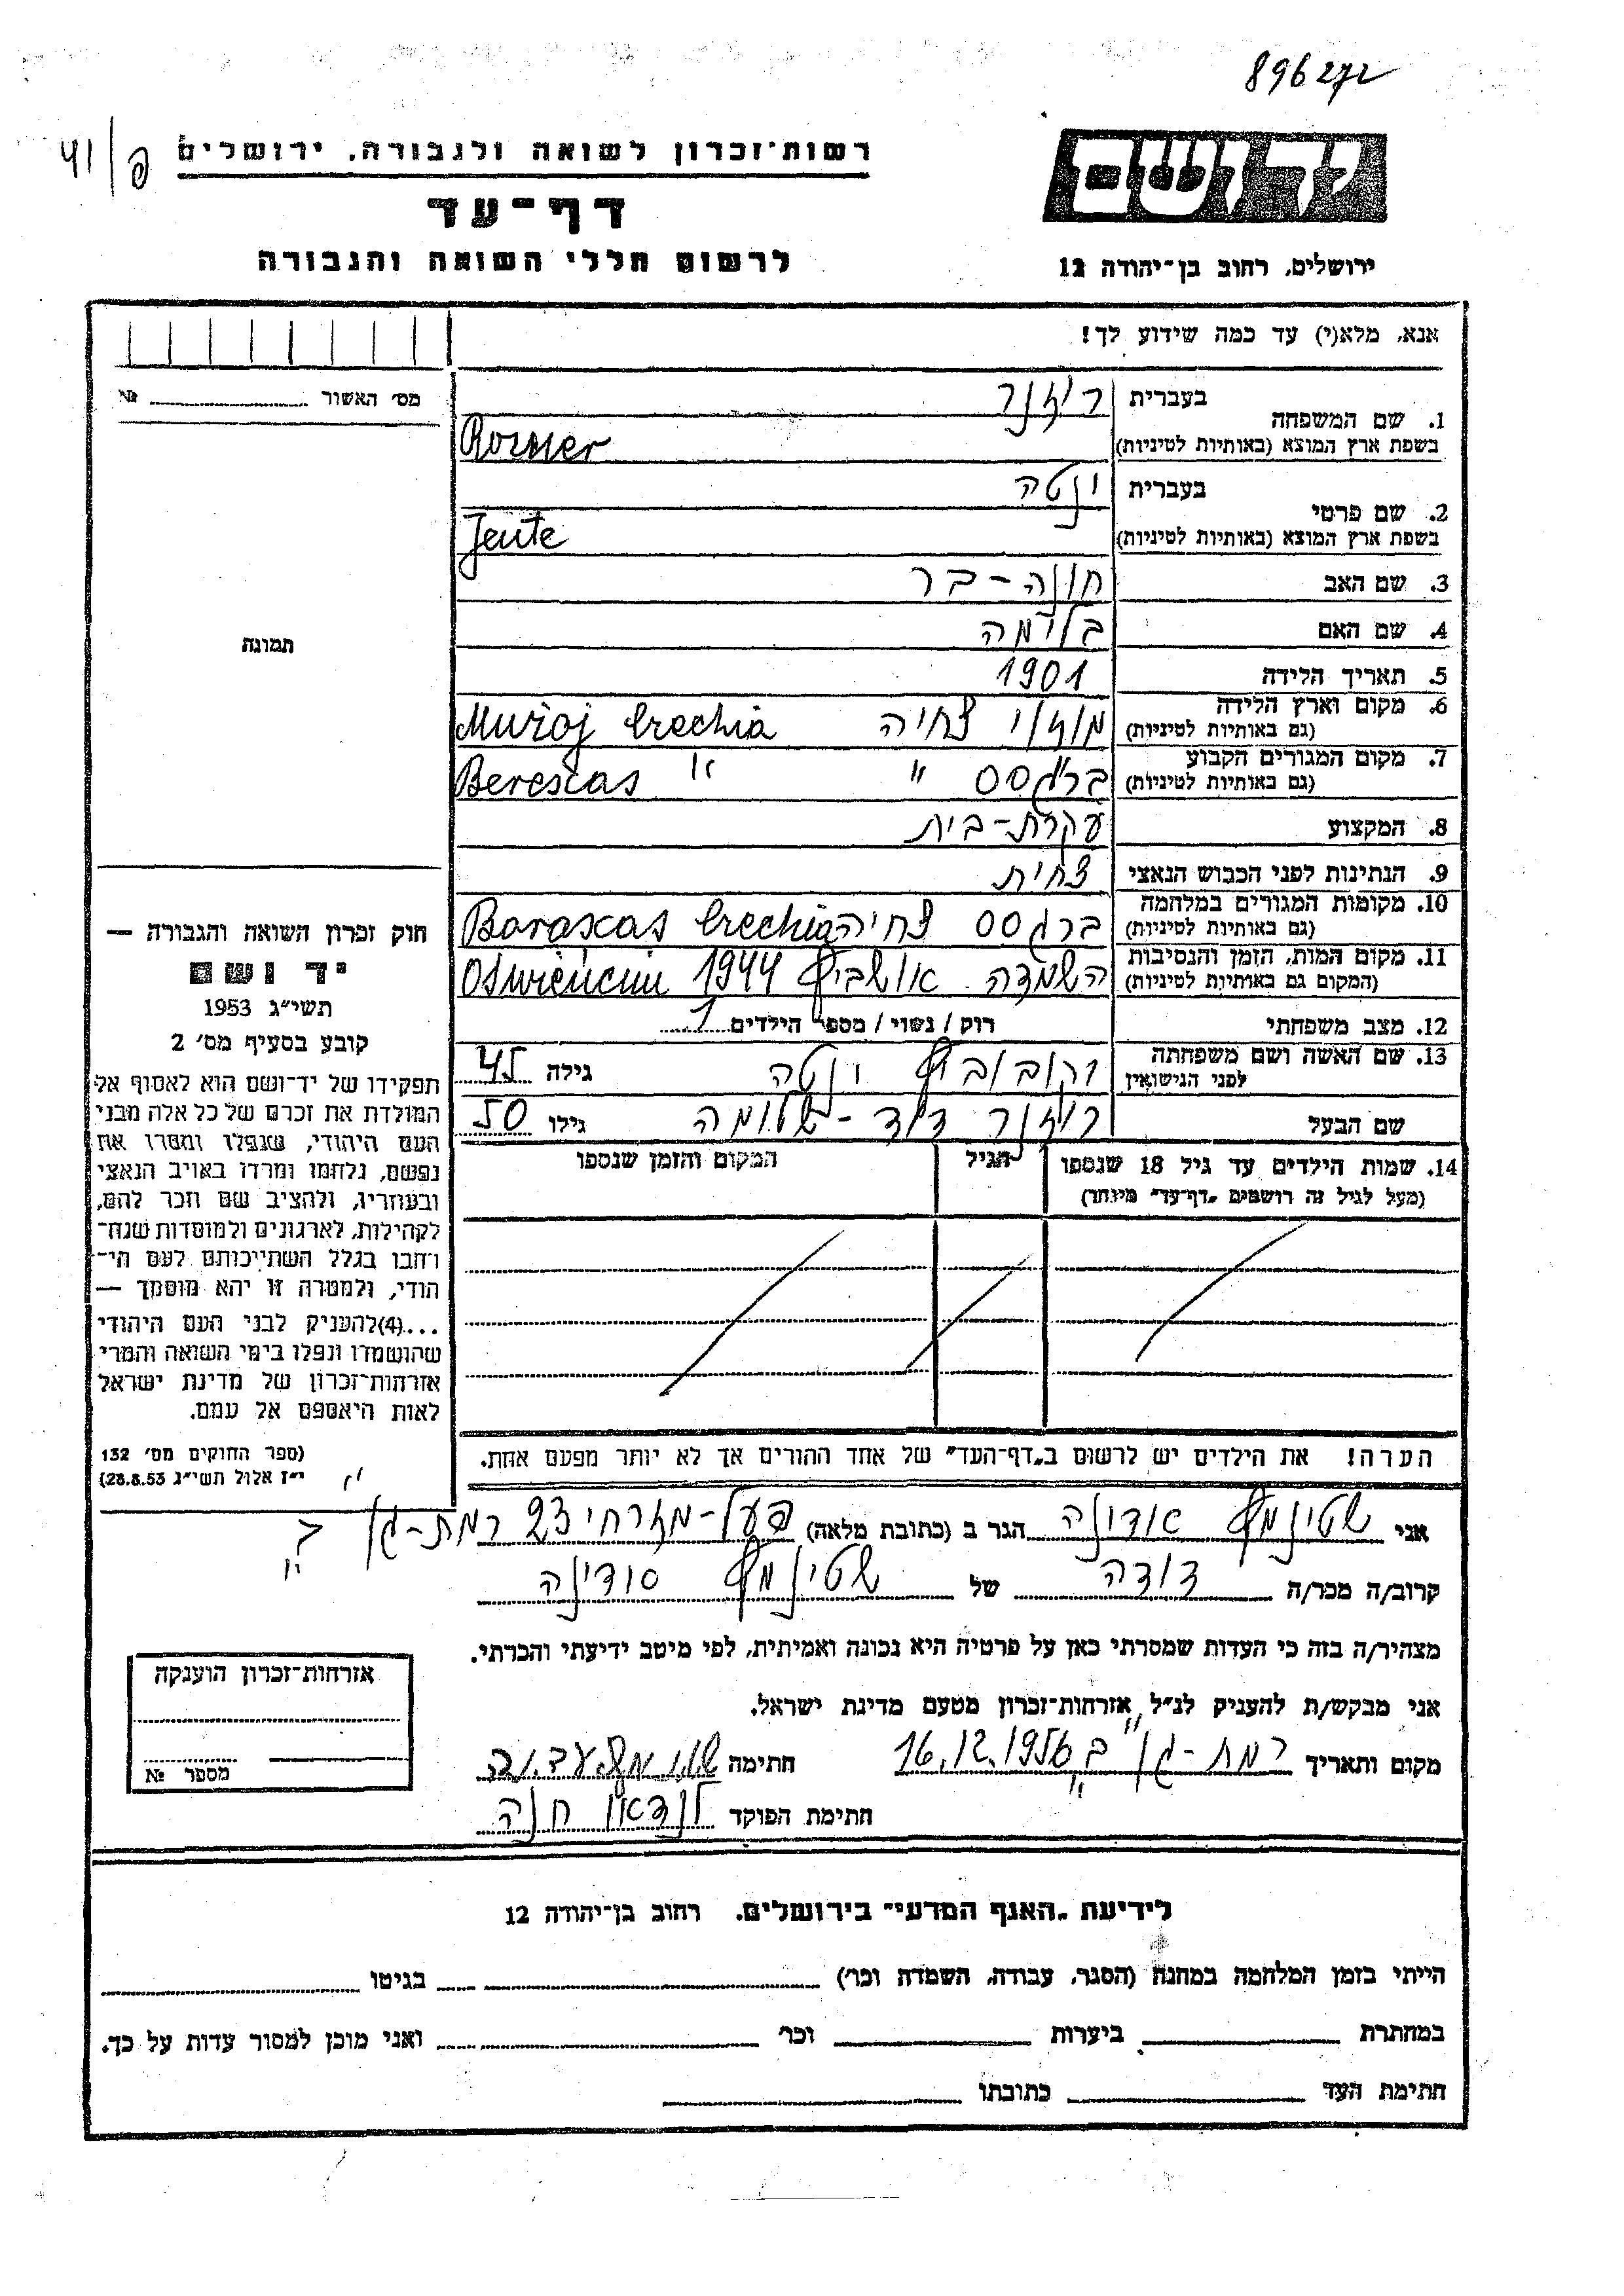 896272
41/פ
רשות־זכרון לשואה ולגבורה, ירושלים
דף־עד
לרשום חללי השואה והגבורה
יד ושם
ירושלים, רחוב בן־יהודה 12
אנא, מלא(י) עד כמה שידוע לך!
מס' האשור №
1. שם המשפחה
בעברית רוזנר
בשפת ארץ המוצא (באותיות לטיניות) Rozner
2. שם פרטי
בעברית ינטה
בשפת ארץ המוצא (באותיות לטיניות) Jente
3. שם האב חונה-בר
4. שם האם בלומה
5. תאריך הלידה 1901
6. מקום וארץ הלידה
(גם באותיות לטיניות) צ'חיה Crechia
7. מקום המגורים הקבוע
(גם באותיות לטיניות) ברגסס " Berescas "
8. המקצוע עקרת-בית
9. הנתינות לפני הכבוש הנאצי צ'חית
10. מקומות המגורים במלחמה
(גם באותיות לטיניות) ברגסס צ'חיה Barascas Crechia
11. מקום המות, הזמן והנסיבות
(המקום גם באותיות לטיניות) השמדה אושביץ 1944 Oświęncim
12. מצב משפחתי רוק/נשוי/מספר הילדים 1
13. שם האשה ושם משפחתה
לפני הנישואין יקובוביץ ינטה גילה 45
שם הבעל רוזנר דוד-שלומה גילו 50
14. שמות הילדים עד גיל 18 שנספו
(מעל לגיל זה רושמים "דף־עד" מיוחד)
הגיל
המקום והזמן שנספו
הערה! את הילדים יש לרשום ב"דף־העד" של אחד ההורים אך לא יותר מפעם אחת.
תמונה
חוק זכרון השואה והגבורה —
יד ושם
תשי"ג 1953
קובע בסעיף מס' 2
תפקידו של יד־ושם הוא לאסוף אל
המולדת את זכרם של כל אלה מבני
העם היהודי, שנפלו ומסרו את
נפשם, נלחמו ומרדו באויב הנאצי
ובעוזריו, ולהציב שם וזכר להם,
לקהילות, לארגונים ולמוסדות שנח־
רבו בגלל השתייכותם לעם הי־
הודי, ולמטרה זו יהא מוסמך —
...(4) להעניק לבני העם היהודי
שהושמדו ונפלו בימי השואה והמרי
אזרחות־זכרון של מדינת ישראל
לאות היאספם אל עמם.
(ספר החוקים מס' 132
י"ז אלול תשי"ג 28.8.53)
אני שטינמץ אדינה הגר ב (כתובת מלאה) פעל-מזרחי 23 רמת-גן ב
קרוב/ה מכר/ה דודה של שטינמץ
מצהיר/ה בזה כי העדות שמסרתי כאן על פרטיה היא נכונה ואמיתית, לפי מיטב ידיעתי והכרתי.
אני מבקש/ת להעניק לנ"ל אזרחות־זכרון מטעם מדינת ישראל.
מקום ותאריך רמת-גן ב 16.12.1956 חתימה
חתימת הפוקד לנדאו חנה
אזרחות־זכרון הוענקה
מספר №
לידיעת "האגף המדעי" בירושלים, רחוב בן־יהודה 12
הייתי בזמן המלחמה במחנה (הסגר, עבודה, השמדה וכר') בגיטו
במחתרת ביערות וכר' ואני מוכן למסור עדות על כך.
חתימת העד כתובתו